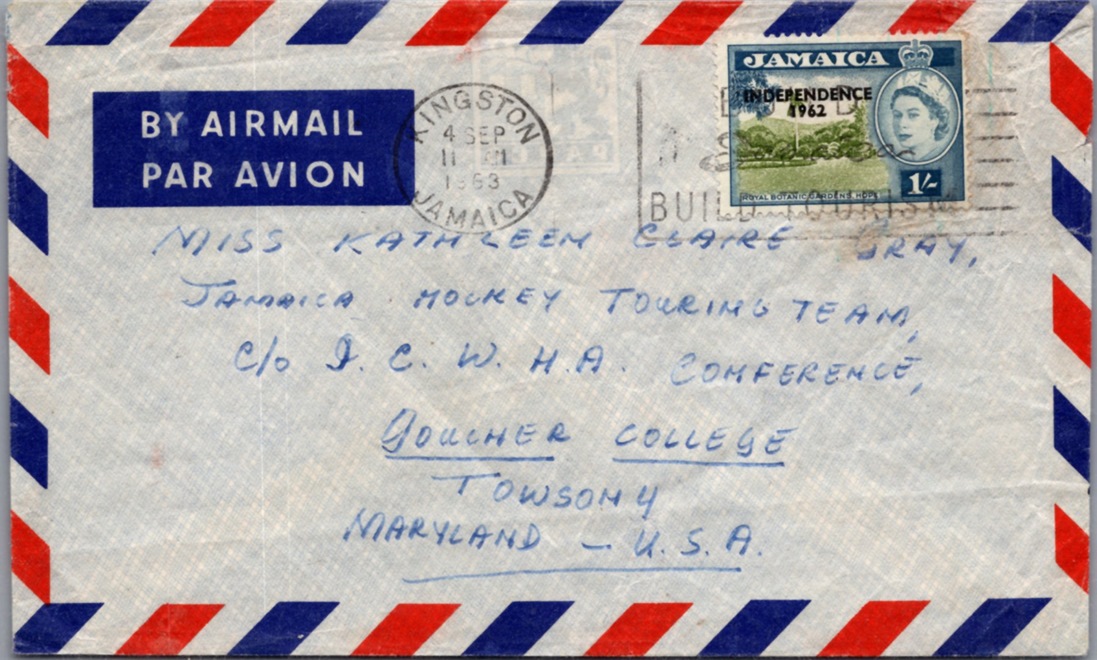 JAMAICA
INDEPENDENCE
1962
1/-
ROYAL BOTANIC GARDENS, HOPE
BY AIRMAIL
PAR AVION
KINGSTON
4 SEP
11
1963
JAMAICA
BUILD TOURISM
MISS KATHLEEN CLAIRE GRAY,
JAMAICA HOCKEY TOURING TEAM,
C/o I. C. W. H. A. CONFERENCE,
GOUCHER COLLEGE
TOWSON 4
MARYLAND – U. S. A.